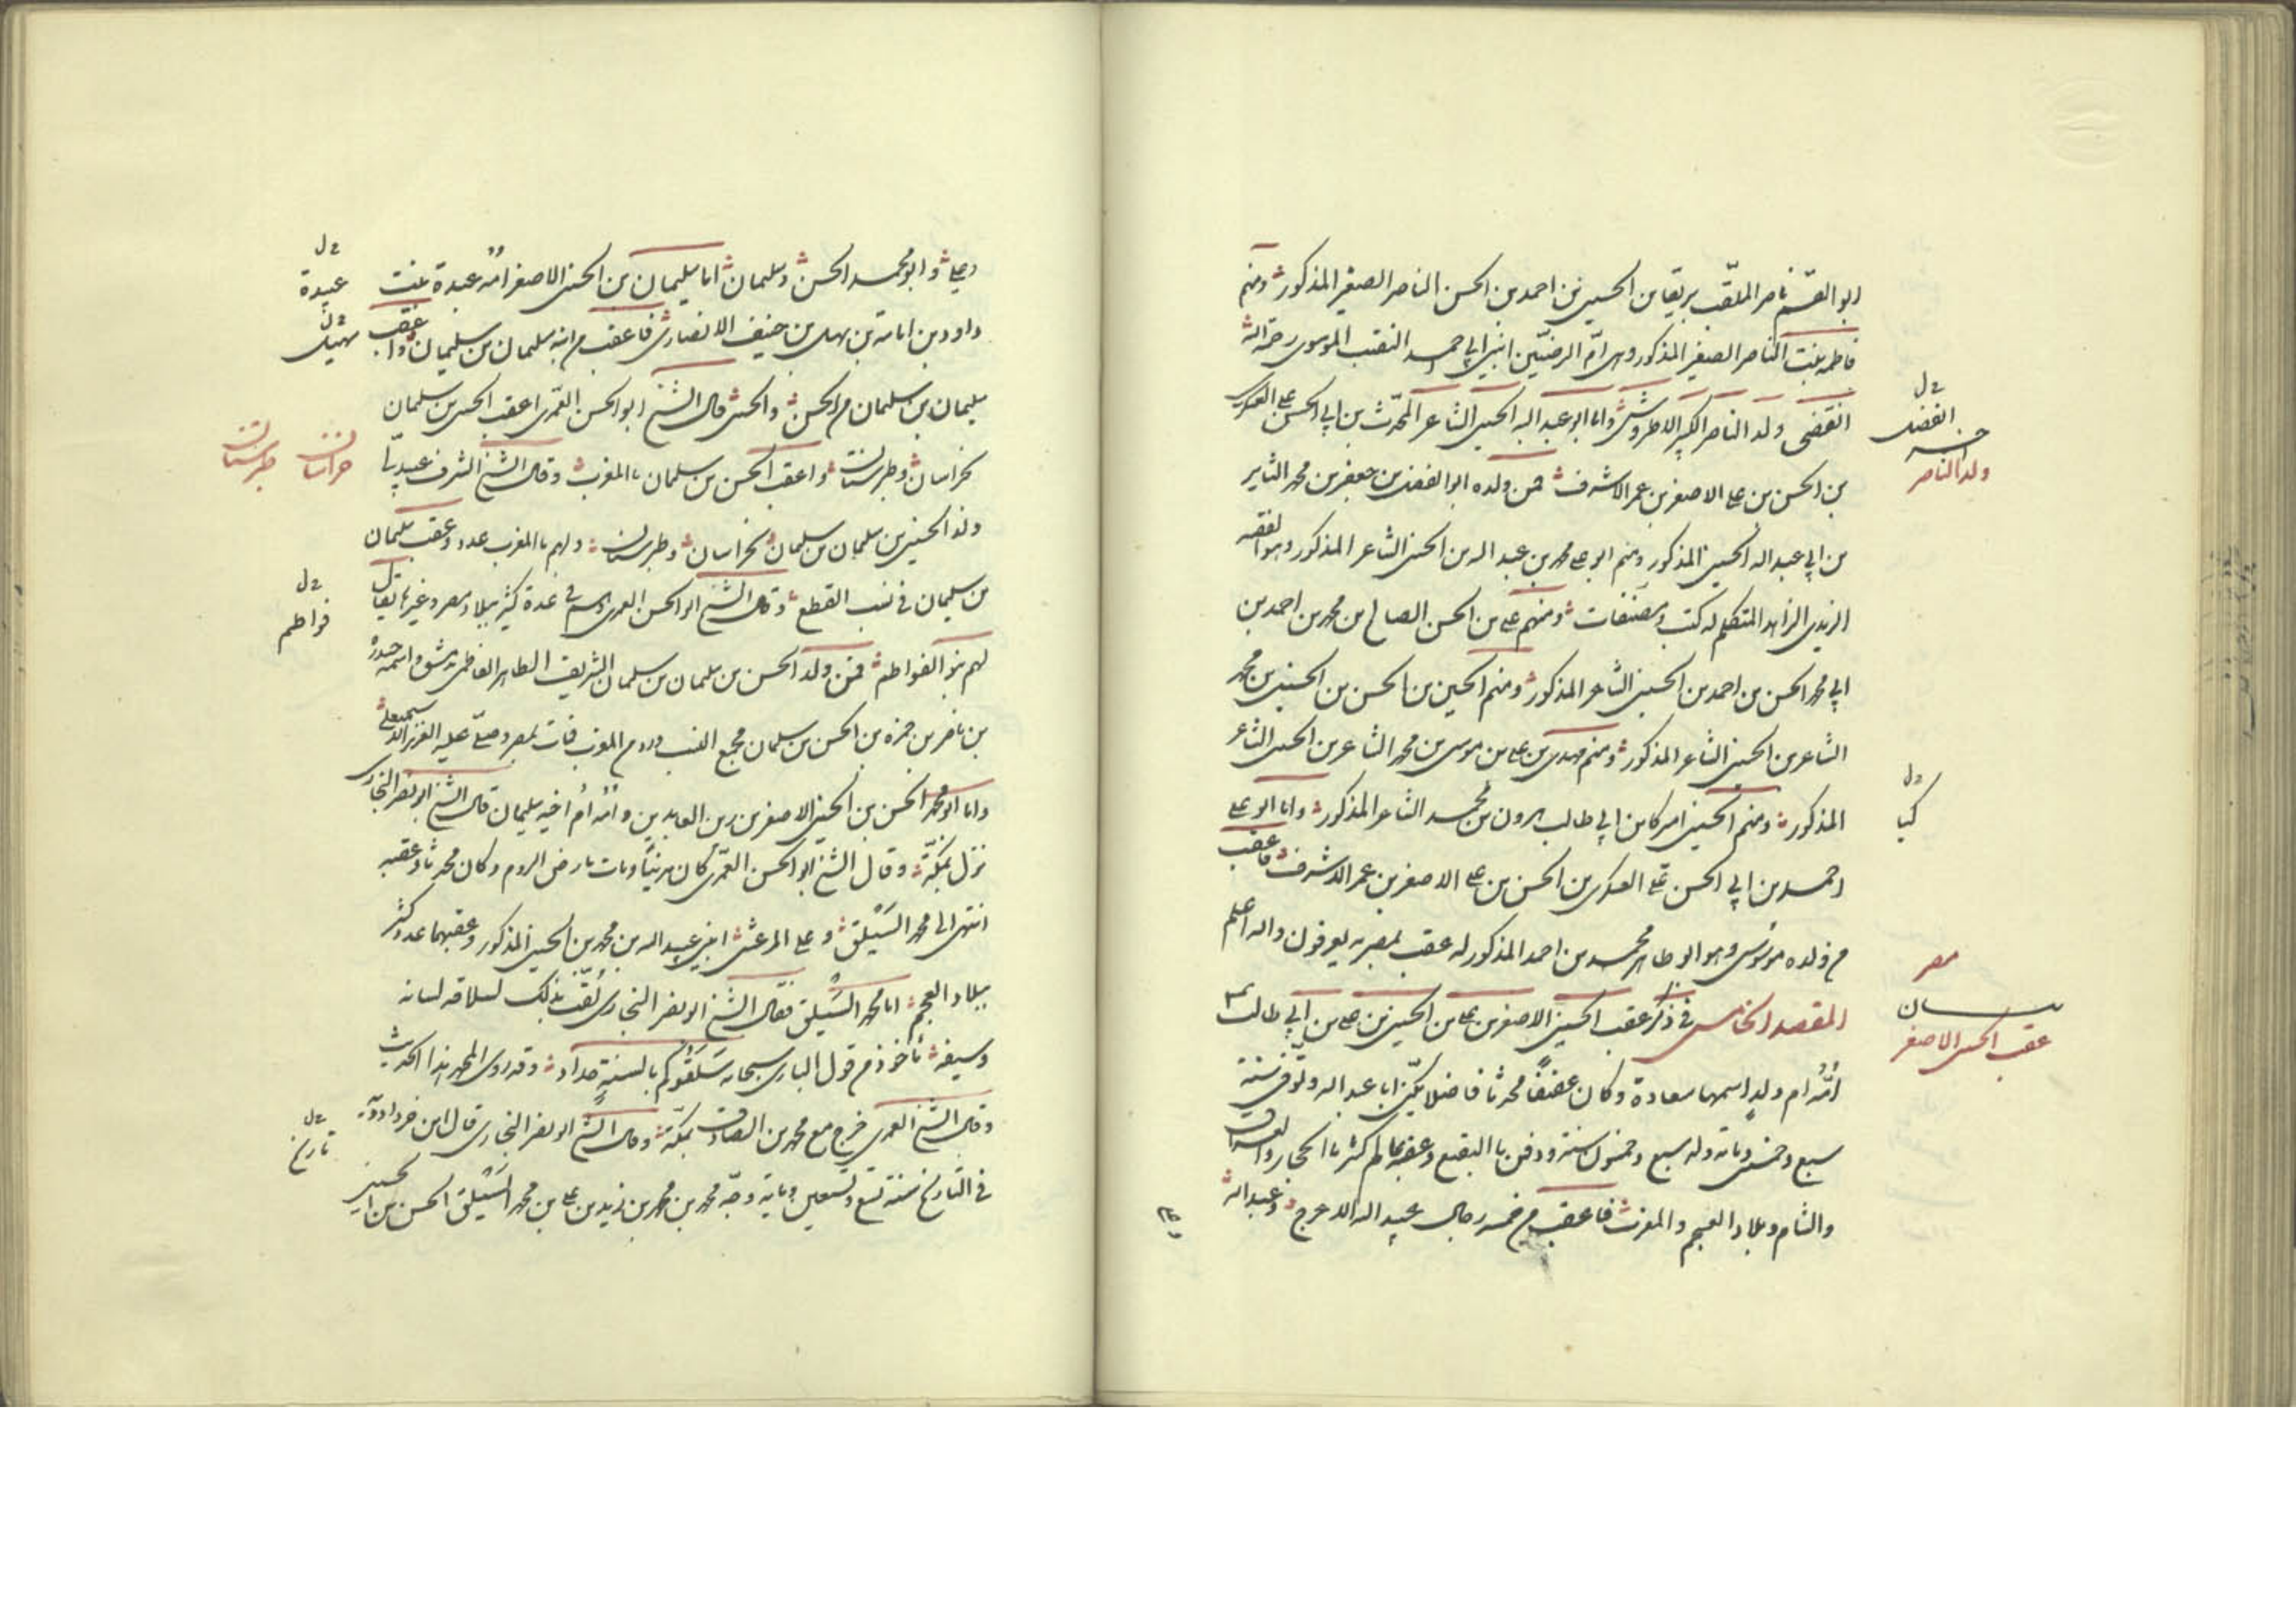 ابو القسم ناصر الملقّب بريقا بن الحسين بن احمد بن الحسن الناصر الصغير المذكور ومنهم
فاطمه بنت الناصر الصغير المذكور وهى امّ الرضيّين ابنى ابي احمد النقيب الموسوى رحمه الله
انقضى ولد الناصر الكبير الاطروش واما ابو عبد الله الحسين الشاعر المحدّث بن ابي الحسن على العسكرى
بن الحسن بن على الاصغر بن عمر الاشرف فمن ولده ابو الفضل بن جعفر بن محمد الثاير
بن ابي عبد الله الحسين المذكور ومنهم ابو على محمد بن عبد الله بن الحسين الشاعر المذكور وهو الفقيه
الزيدى الزاهد المتكلم له كتب ومصنفات ومنهم على بن الحسن الصالح بن محمد بن احمد بن
ابي محمد الحسن بن احمد بن الحسين الشاعر المذكور ومنهم الحسين بن الحسن بن الحسين بن محمد
الشاعر بن الحسين الشاعر المذكور ومنهم مهدى بن على بن موسى بن محمد الشاعر بن الحسين الشاعر
المذكور ومنهم الحسين اميركا بن ابي طالب هرون بن محمد الشاعر المذكور واما ابو على
احمد بن ابي الحسن على العسكرى بن الحسن بن على الاصغر بن عمر الاشرف فاعقب
من ولده موسى وهو ابو طاهر محمد بن احمد المذكور له عقب بمصر به يعرفون والله اعلم
المقصد الخامس فى ذكر عقب الحسين الاصغر بن على بن الحسين بن على بن ابي طالب
امّه ام ولد اسمها سعادة وكان عفيفاً محدثا فاضلا يكنّى ابا عبد الله وتوفى سنة
سبع وخمسين ومائة وله سبع وخمسون سنة ودفن بالبقيع وعقبه عالم كثير بالحجاز والعراق
والشام وبلاد العجم والمغرب فاعقب من خمسه رجال عبيد الله الاعرج وعبد الله
ح ل
الفضل
ولد الناصر
ح ل
كيا
مصر
عقب الحسين الاصغر
وعلى وابو محمد الحسن وسليمان اما سليمان بن الحسين الاصغر امه عبدة بنت
داود بن امامة بن سهل بن حنيف الانصارى فاعقب من ابنه سليمان بن سليمان واعقب
سليمان بن سليمان من الحسن والحسين قال الشيخ ابو الحسن العمرى اعقب الحسين بن سليمان
بخراسان وطبرستان واعقب الحسن بن سليمان بالمغرب وقال الشيخ الشرف عبيدلى
ولد الحسين بن سليمان بن سليمان بخراسان وطبرستان ولهم بالمغرب عدد وعقب سليمان
بن سليمان فى نسب القطع وقال الشيخ ابو الحسن العمرى وهم فى عدة كثيرة ببلاد مصر وغيرها يقال
لهم بنو الفواطم فمن ولد الحسن بن سليمان بن سليمان الشريف الطاهر الفاطمى بدمشق واسمه حيدرة
بن ناصر بن حمزه بن الحسن بن سليمان مجمع النسب ورد من المغرب فمات بمصر وصلّى عليه العزيز الاسمعيلى
واما ابو محمد الحسن بن الحسين الاصغر بن زين العابدين وامّه ام اخيه سليمان قال الشيخ ابو نصر البخارى
نزل بمكّة وقال الشيخ ابو الحسن العمرى كان مدنياً ومات بارض الروم وكان محدثا وعقبه
انتهى الى محمد السَيْلق وعلى المرعش ابنى عبيد الله بن محمد بن الحسين المذكور وعقبهما عدد كثير
ببلاد العجم اما محمد السَيْلق فقال الشيخ ابو نصر البخارى لُقّب بذلك لسلاقه لسانه
وسيفه مأخوذ من قول البارى سبحانه سَلَقُوكم بالسنةٍ حداد وقد روى المحمد هذا الحديث
وقال الشيخ العمرى خرج مع محمد بن الصادق بمكّة وقال الشيخ ابو نصر البخارى قال ابن خرداد به
فى التاريخ سنة تسع وتسعين ومائة وجّه محمد بن محمد بن زيد بن على بن محمد السَيْلق الحسن بن الحسين
ح ل
عبيدة
ح ل
سهيل
خراسان
طبرستان
ح ل
فواطم
ح ل
تاريخ